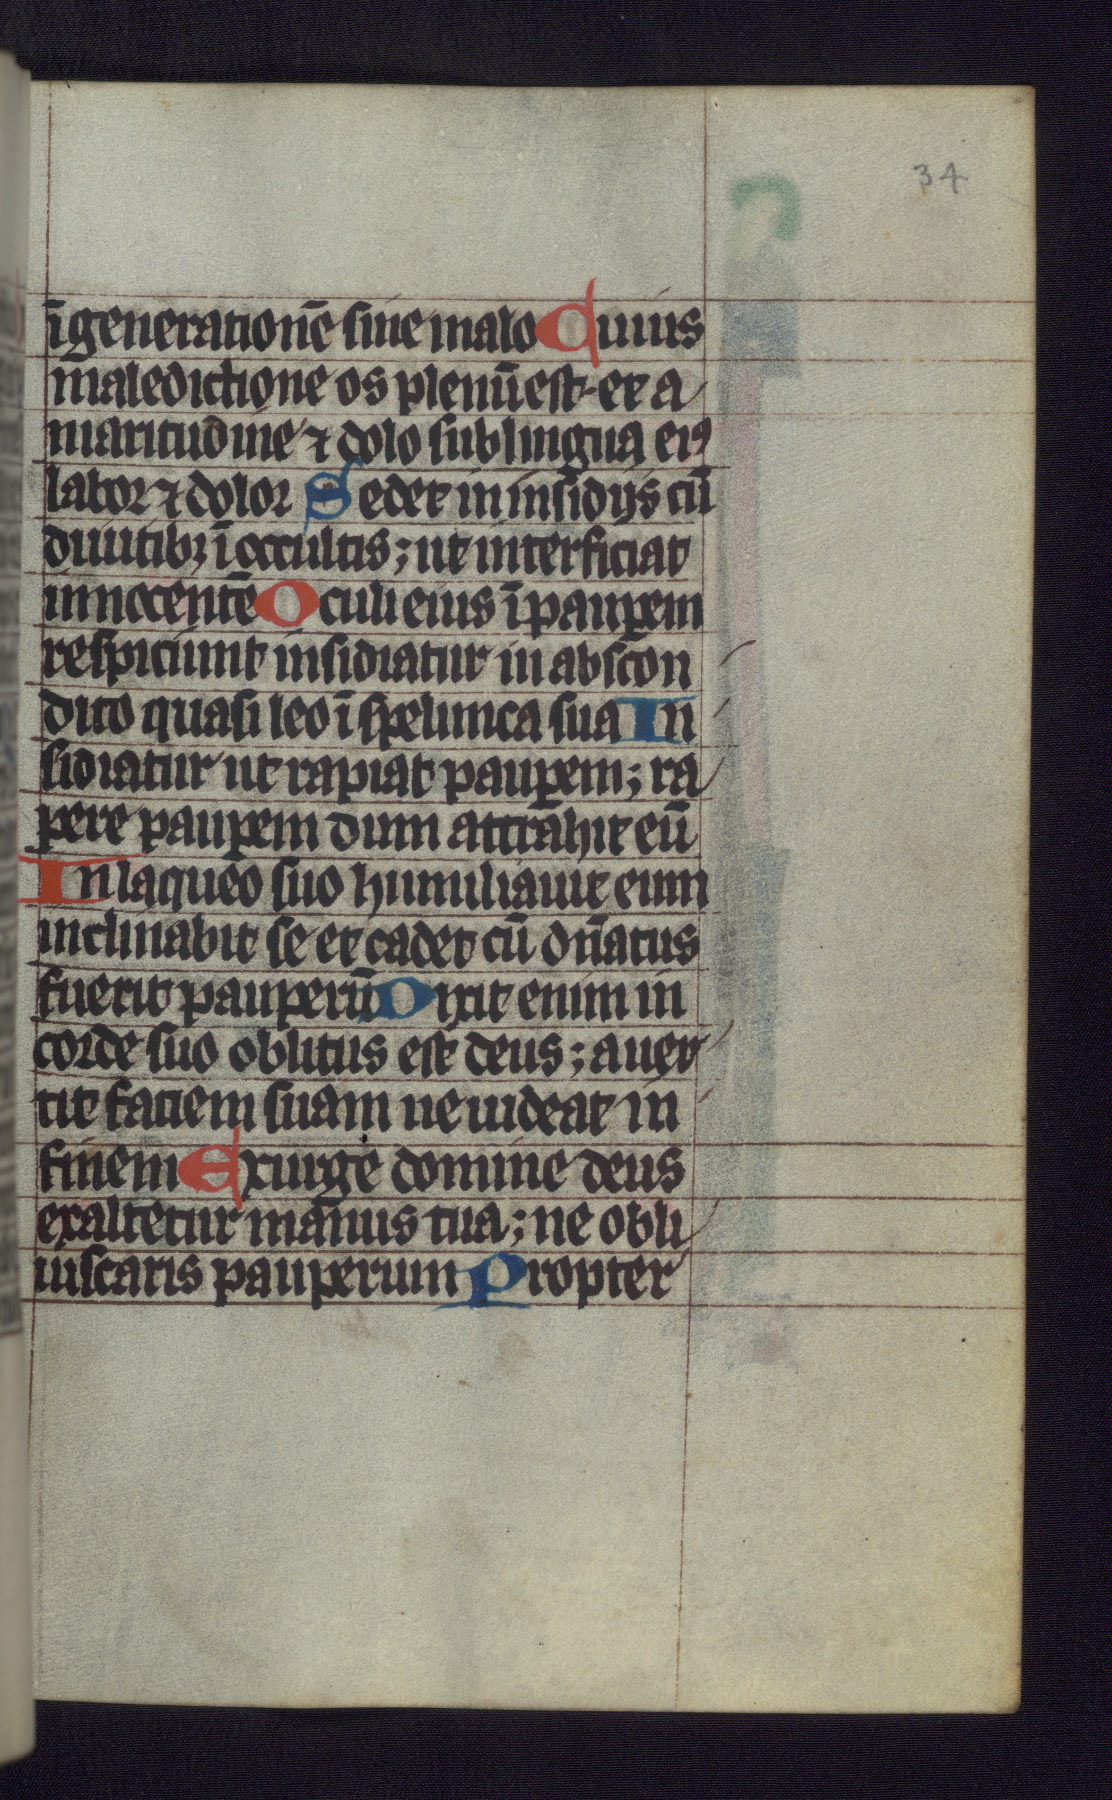 34
ī generationē sine malo Cuius
maledictione os plenū est et a
maritudine ⁊ dolo sub lingua eiꝰ
labor ⁊ dolor Sedet in insidijs cū
diuitibꝫ ī occultis; ut interficiat
innocentē Oculi eius ī paupem
respiciunt insidiatur in abscon
dito quasi leo ī spelunca sua In
sidiatur ut rapiat paupem; ra
pere paupem dum attrahit eū
In laqueo suo humiliauit eum
inclinabit se et cadet cū dn̄atus
fuerit pauperū Dixit enim in
corde suo oblitus est deus; auer
tit faciem suam ne uideat in
finem Exurge domine deus
exaltetur manus tua; ne obli
uiscaris pauperum Propter